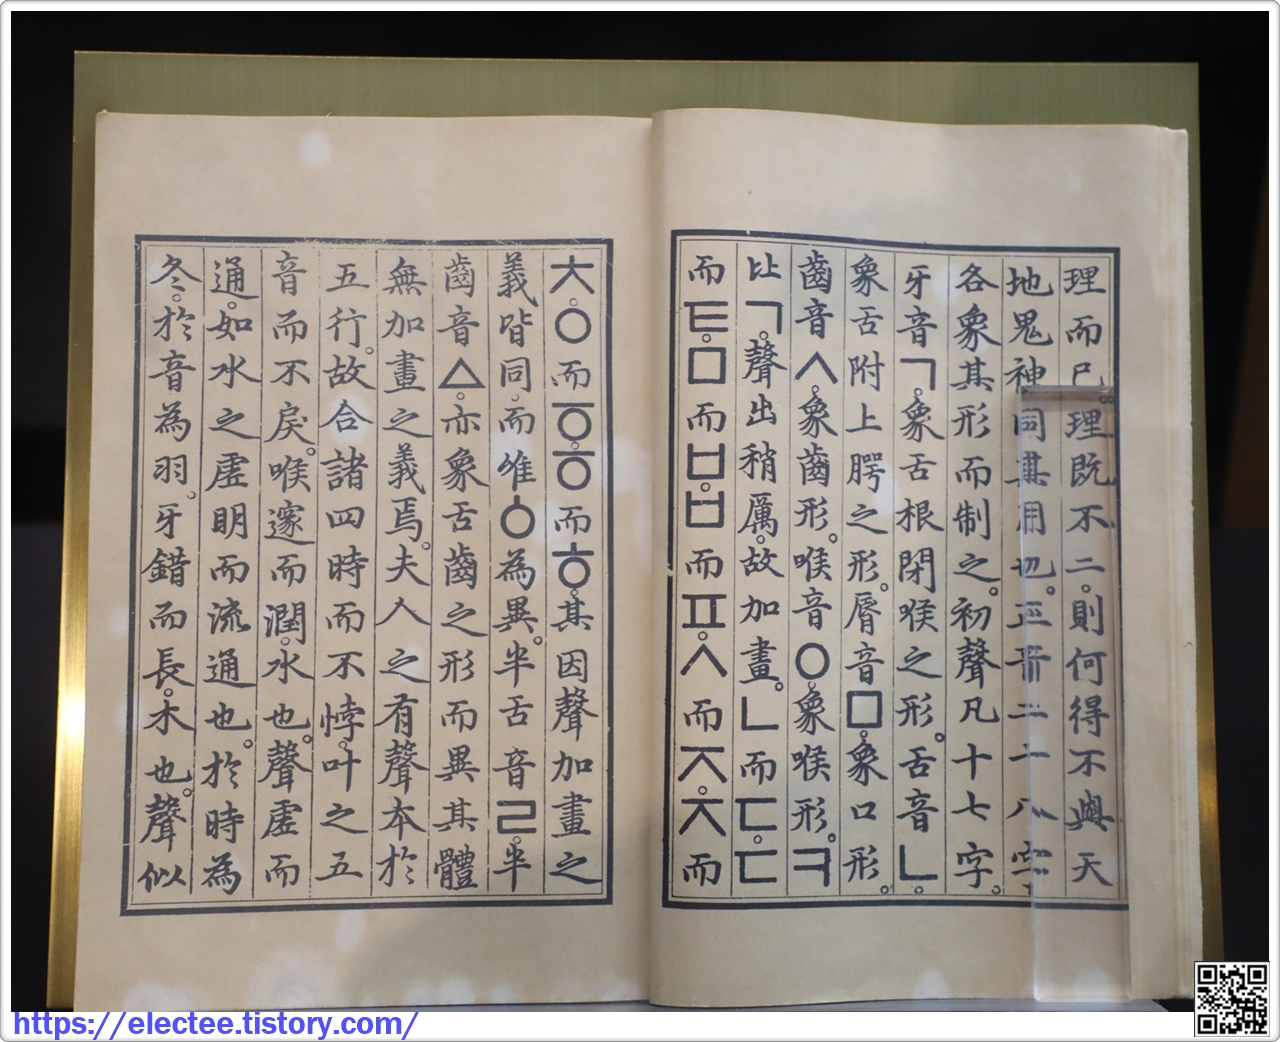 理而已。理既不二。則何得不與天
地鬼神同其用也。正音二十八字
各象其形而制之。初聲凡十七字。
牙音ㄱ。象舌根閉喉之形。舌音ㄴ。
象舌附上腭之形。脣音ㅁ。象口形。
齒音ㅅ。象齒形。喉音ㅇ。象喉形。ㅋ
比ㄱ。聲出稍厲。故加畫。ㄴ而ㄷ。ㄷ
而ㅌ。ㅁ而ㅂ。ㅂ而ㅍ。ㅅ而ㅈ。ㅈ而
ㅊ。ㅇ而ㆆ。ㆆ而ㅎ。其因聲加畫之
義皆同。而唯ㆁ為異。半舌音ㄹ。半
齒音ㅿ。亦象舌齒之形而異其體
無加畫之義焉。夫人之有聲本於
五行。故合諸四時而不悖。叶之五
音而不戾。喉邃而潤。水也。聲虛而
通。如水之虛明而流通也。於時為
冬。於音為羽。牙錯而長。木也。聲似
https://electee.tistory.com/